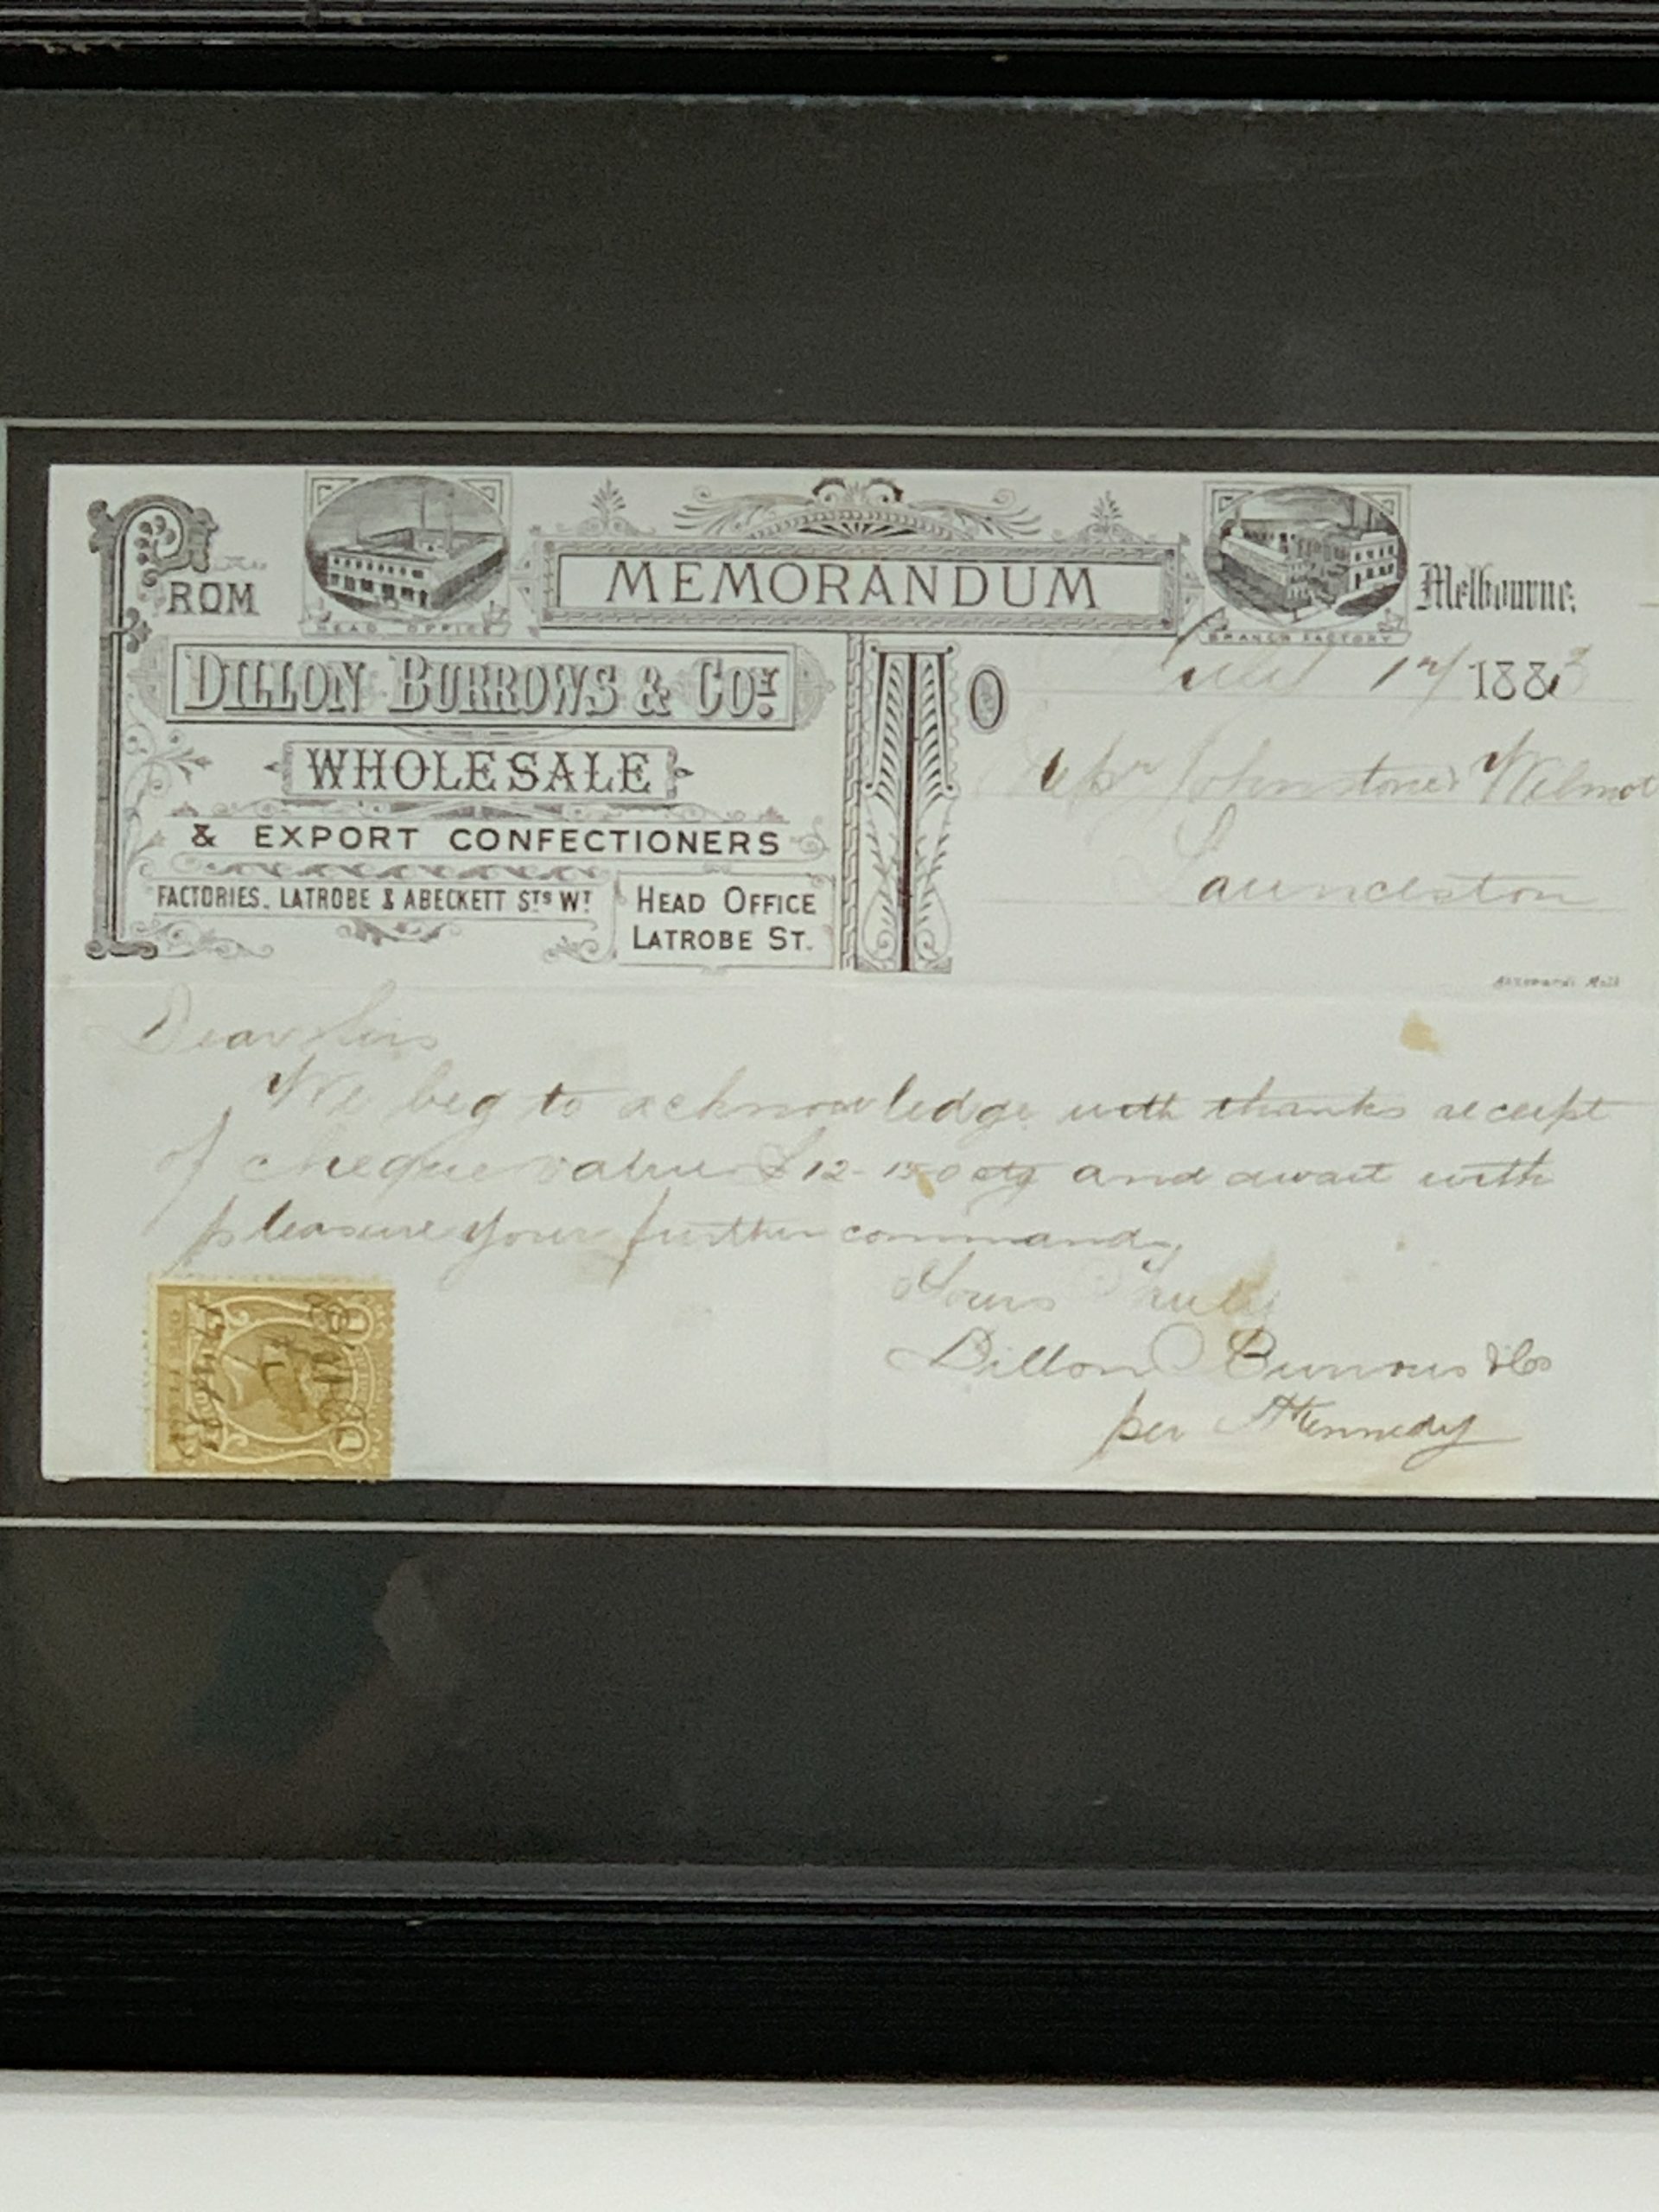 FROM
HEAD OFFICE
MEMORANDUM
BRANCH FACTORY
Melbourne,
DILLON BURROWS & COY.
WHOLESALE
& EXPORT CONFECTIONERS
FACTORIES. LATROBE & ABECKETT STS WT
HEAD OFFICE
LATROBE ST.
TO
17/ 1883
Johnstone & Wilmot
Launceston
Dear Sirs
We beg to acknowledge with thanks receipt
of cheque value £12-
and await with
pleasure your further commands
Yours Truly
Dillon Burrows & Co
per Kennedy